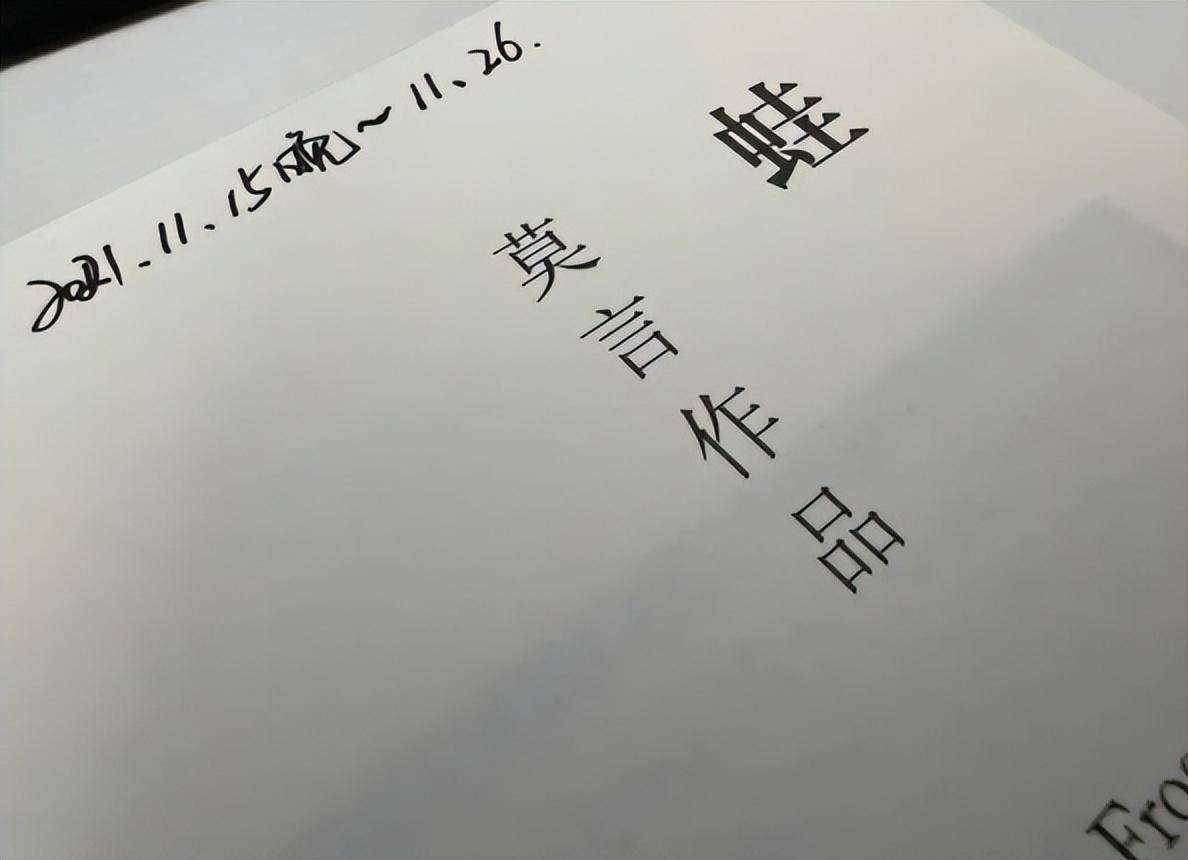 2021.11.15晚~11、26.
蛙
莫言作品
Fro